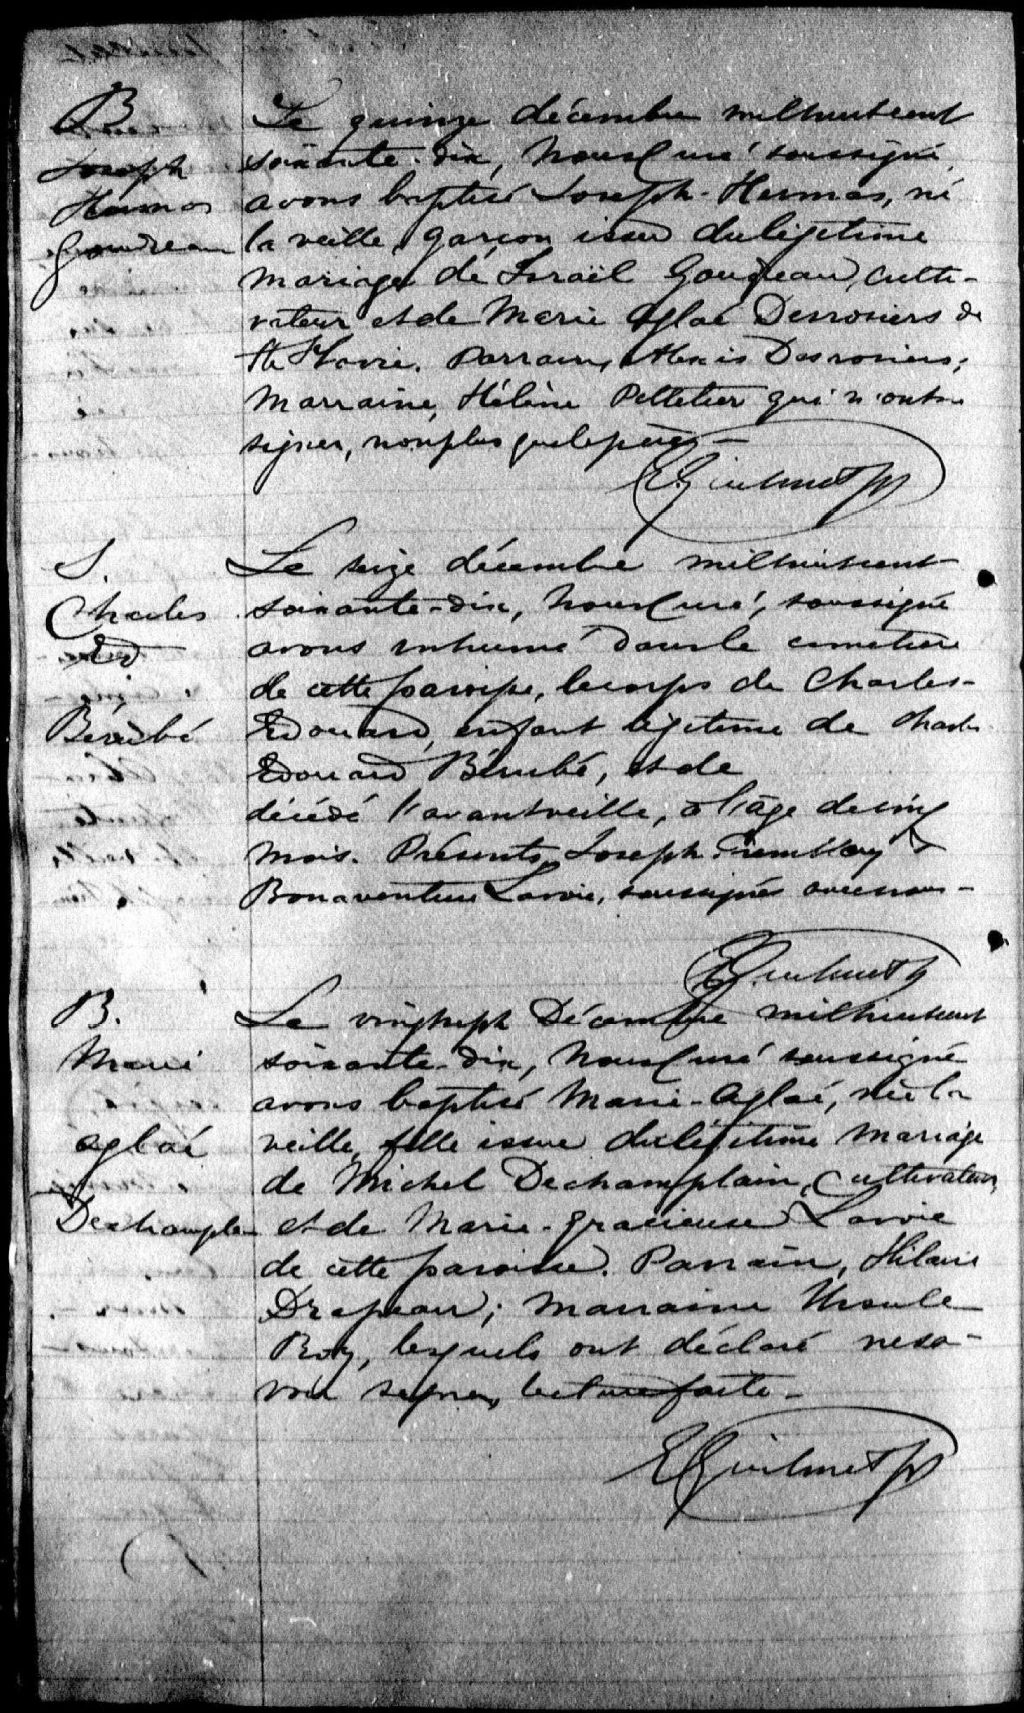 B
Joseph
Hermas
Goudreau
Le quinze décembre mil huit cent
soixante-dix, Nous Curé soussigné,
avons baptisé Joseph-Hermas, né
la veille, garçon issu du légitime
mariage de Israël Goudreau, culti-
vateur et de Marie Aglaé Desrosiers de
Ste Flavie. Parrain, Alexis Desrosiers;
Marraine, Hélène Pelletier qui n'ont su
signer, non plus que le père -
E Guilmet ptr
S.
Charles
Ed
Bérubé
Le seize décembre mil huit cent
soixante-dix, Nous Curé, soussigné
avons inhumé dans le cimetière
de cette paroisse, le corps de Charles-
Edouard, enfant légitime de Charles
Edouard Bérubé, et de
décédé l'avant veille, à l'âge de cinq
mois. Présents, Joseph Tremblay &
Bonaventure Lavoie, soussignés avec nous -
E Guilmet ptr
B.
Marie
Aglaé
Dechamplain
Le vingt sept Décembre mil huit cent
soixante-dix, Nous Curé soussigné
avons baptisé Marie-Aglaé, née la
veille, fille issue du légitime mariage
de Michel Dechamplain, Cultivateur,
et de Marie-Gracieuse Lavoie
de cette paroisse. Parrain, Hilaire
Drapeau; marraine Ursule
Roy, lesquels ont déclaré ne sa-
voir signer, lecture faite -
E Guilmet ptr